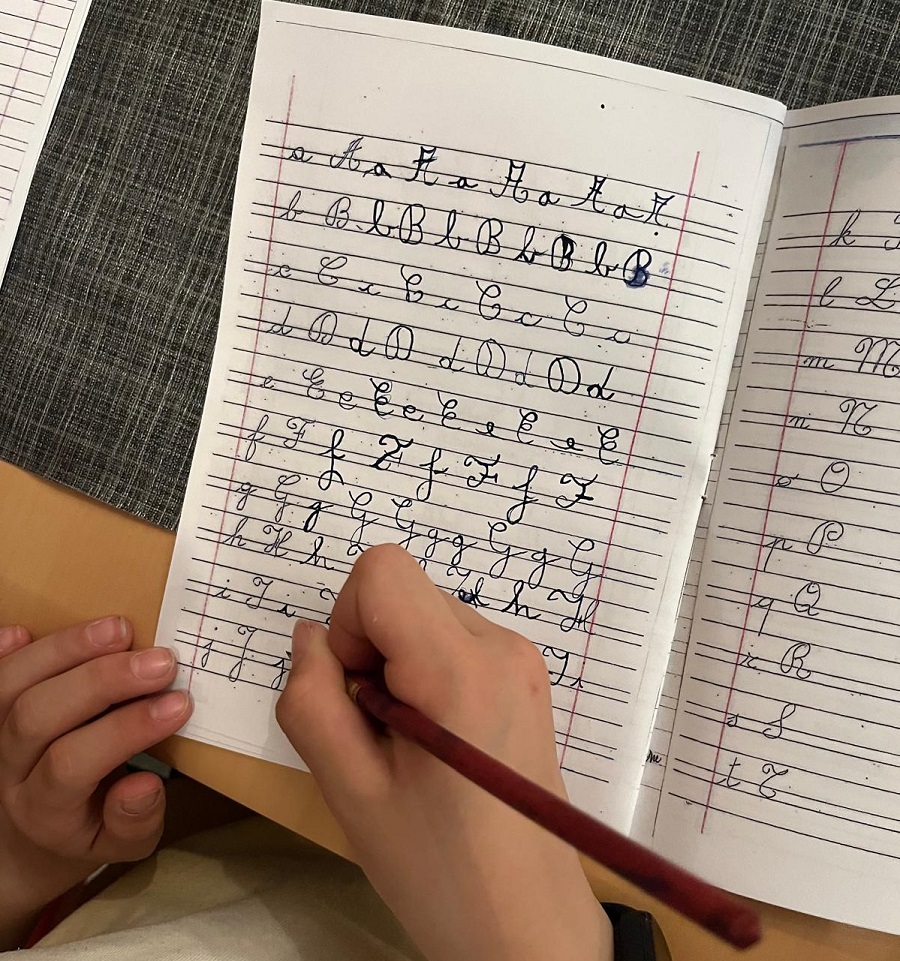 a A a A a A a A a A
b B b B b B b B b B
c C c C c C c C c
d D d D d D d D d
e E e E e E e E e E
f F f F f F f F
g G g G G g g G g G
h H h H h H h H
i I i I i
j J j
k
l L
m M
n N
o O
p P
q Q
r R
s S
t T